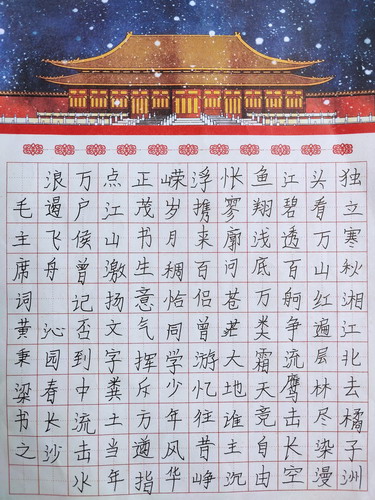 独立寒秋湘江北去橘子洲
头看万山红遍层林尽染漫
江碧透百舸争流鹰击长空
鱼翔浅底万类霜天竞自由
怅寥廓问苍茫大地谁主沉
浮携来百侣曾游忆往昔峥
嵘岁月稠恰同学少年风华
正茂书生意气挥斥方遒指
点江山激扬文字粪土当年
万户侯曾记否到中流击水
浪遏飞舟 沁园春长沙
毛主席词黄秉梁书之